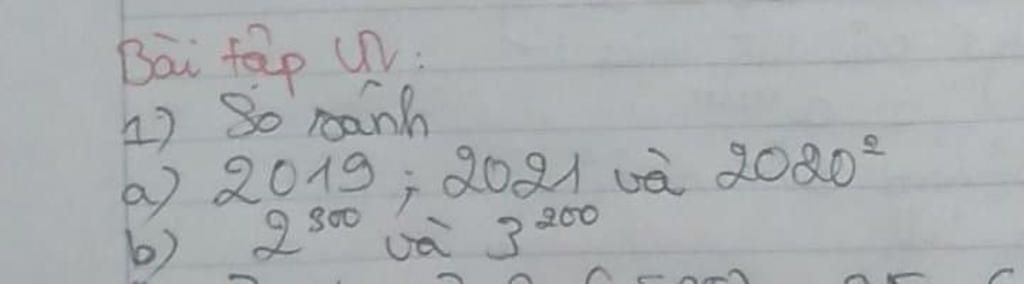 Bài tập VN:
1) So sánh
a) 2019 ; 2021 và 2020²
b) 2³⁰⁰ và 3²⁰⁰